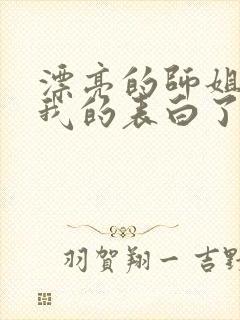 漂亮的師姐
我的表白了
羽賀翔一 吉野